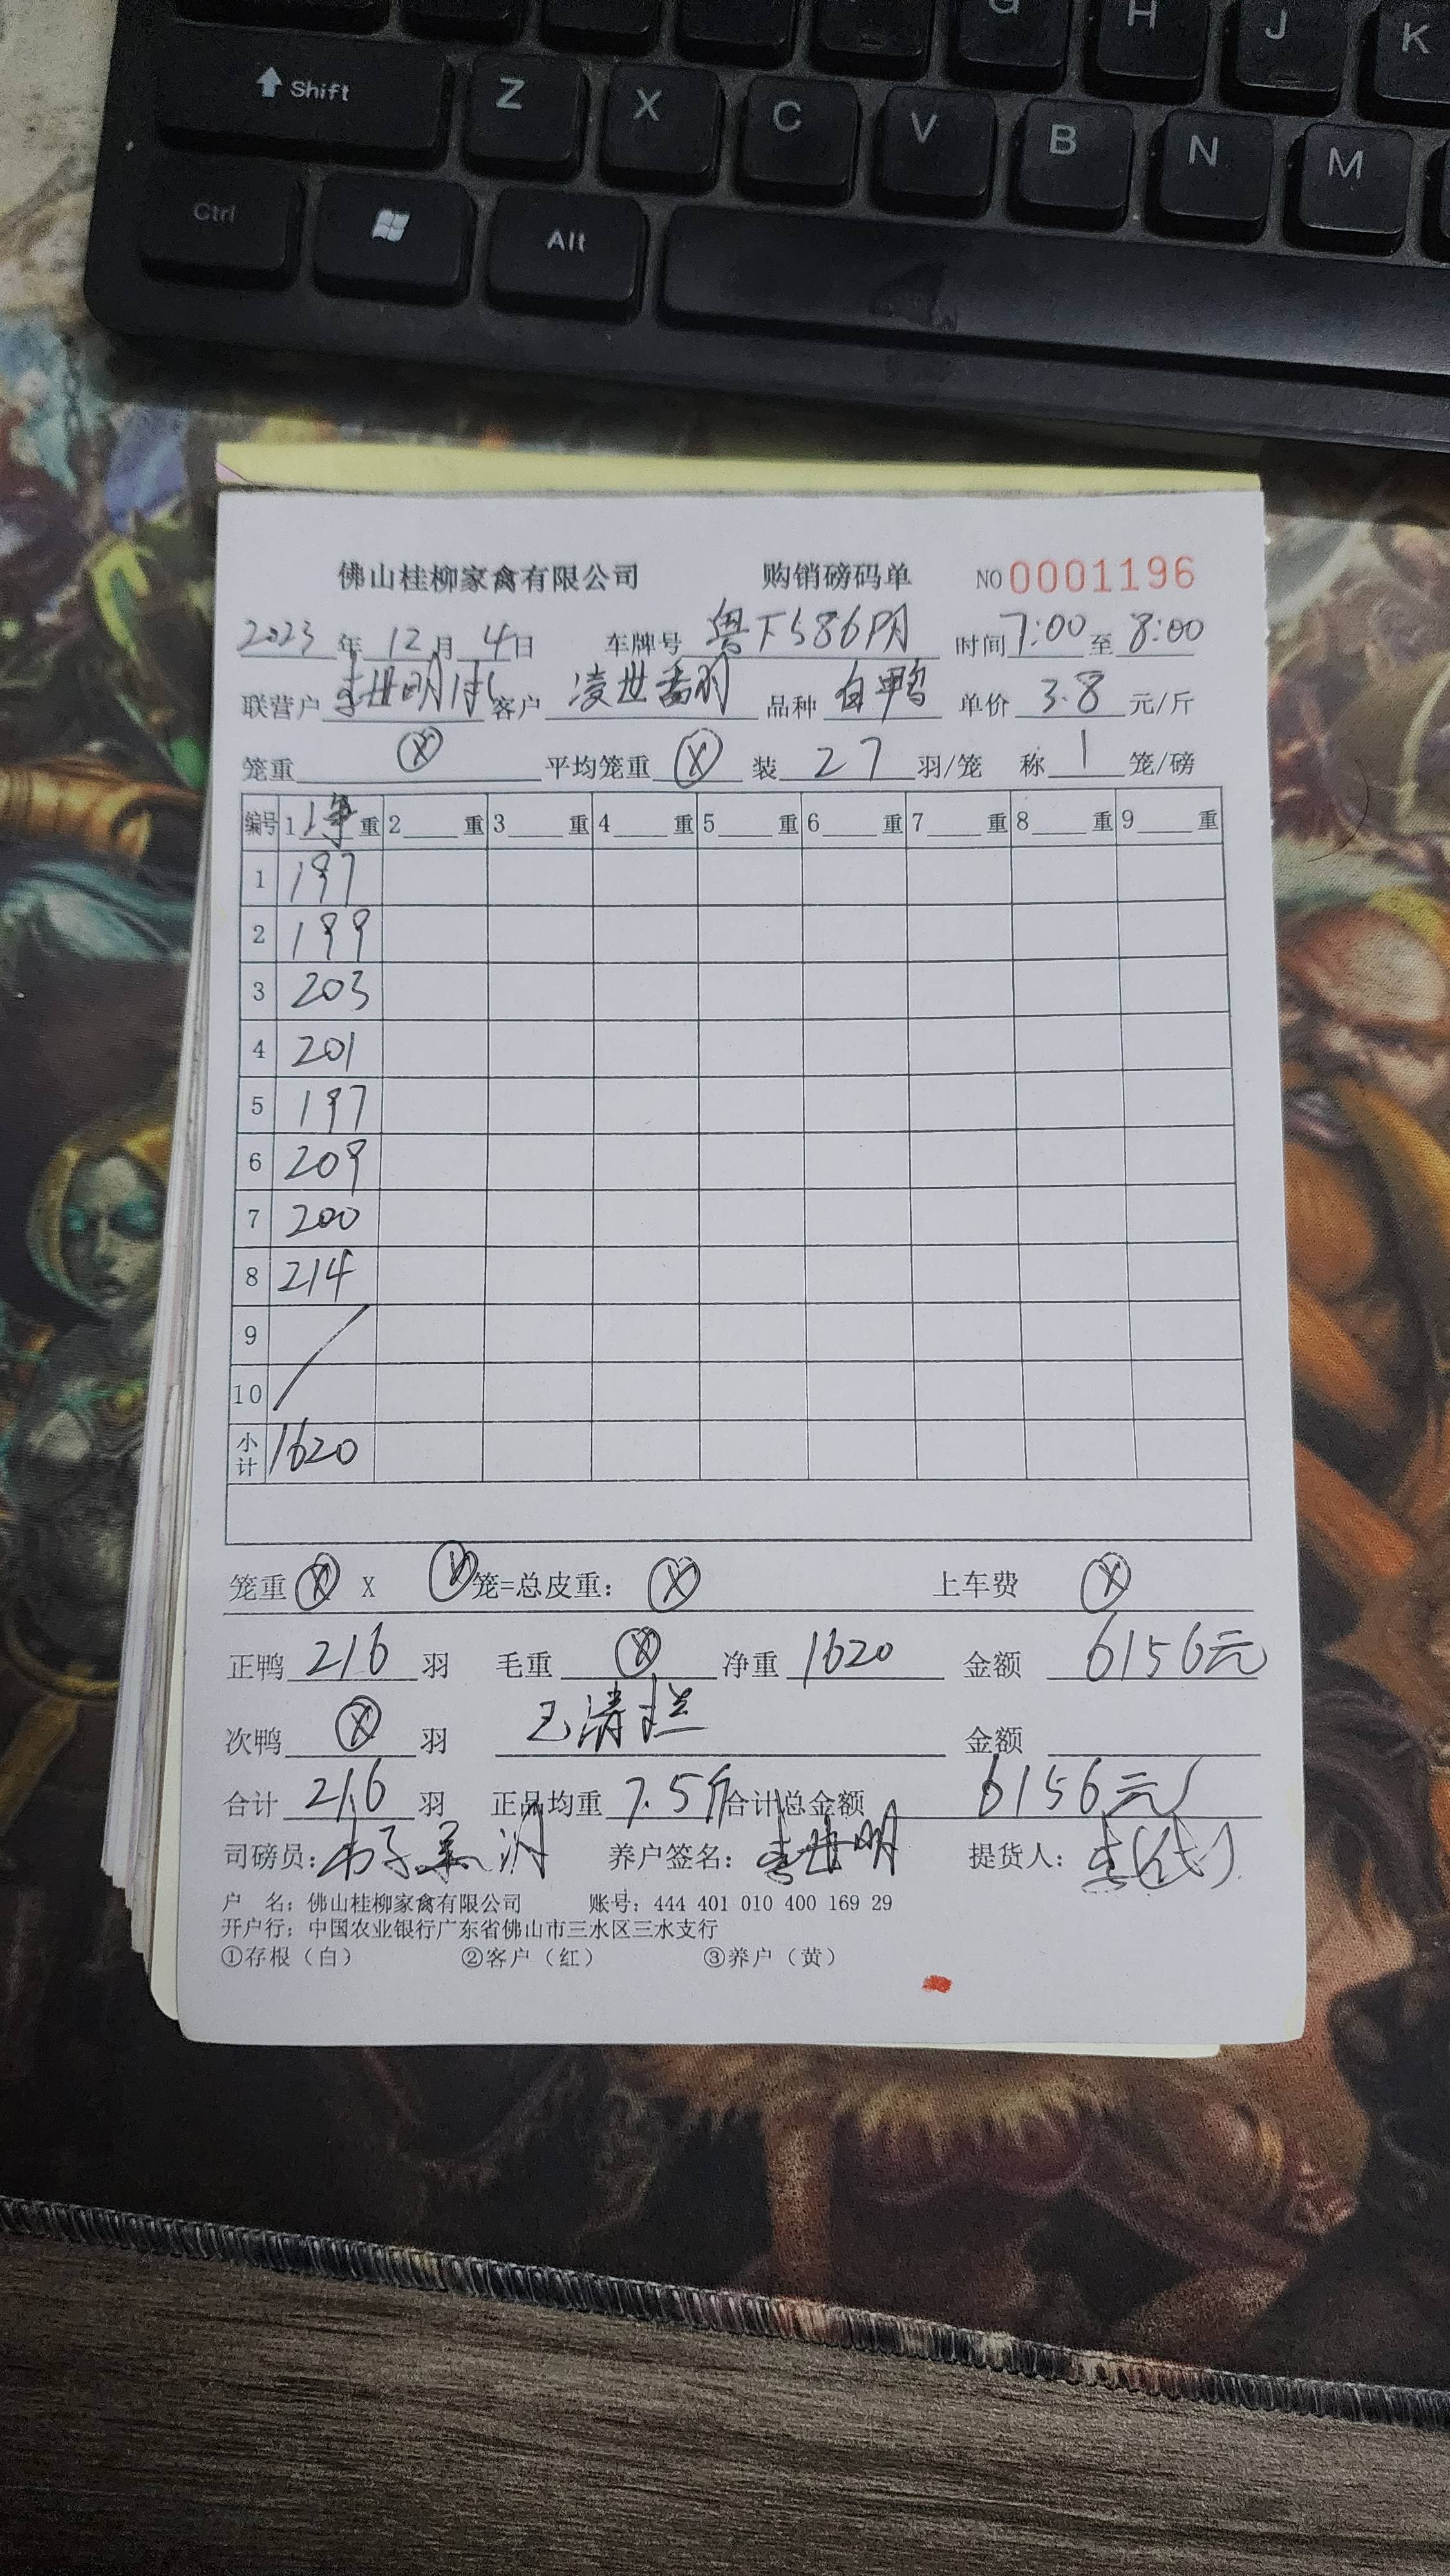 G H J K
Shift Z X C V B N M
Ctrl Alt
佛山桂柳家禽有限公司 购销磅码单 NO 0001196
2023年12月4日 车牌号 粤 586 时间 7:00 至 8:00
联营户 李世明 客户 凌世 品种 白鸭 单价 3.8 元/斤
笼重 Ⓧ 平均笼重 Ⓧ 装 27 羽/笼 称 1 笼/磅
编号 1 净 重 2 重 3 重 4 重 5 重 6 重 7 重 8 重 9 重
1 197
2 199
3 203
4 201
5 197
6 209
7 200
8 214
9
10
小计 1620
笼重 Ⓧ X Ⓧ 笼=总皮重: Ⓧ 上车费 Ⓧ
正鸭 216 羽 毛重 Ⓧ 净重 1620 金额 6156元
次鸭 Ⓧ 羽 已清栏 金额
合计 216 羽 正品均重 7.5斤 合计总金额 6156元
司磅员: 养户签名: 李世明 提货人: 李(代)
户 名: 佛山桂柳家禽有限公司 账号: 444 401 010 400 169 29
开户行: 中国农业银行广东省佛山市三水区三水支行
①存根（白） ②客户（红） ③养户（黄）